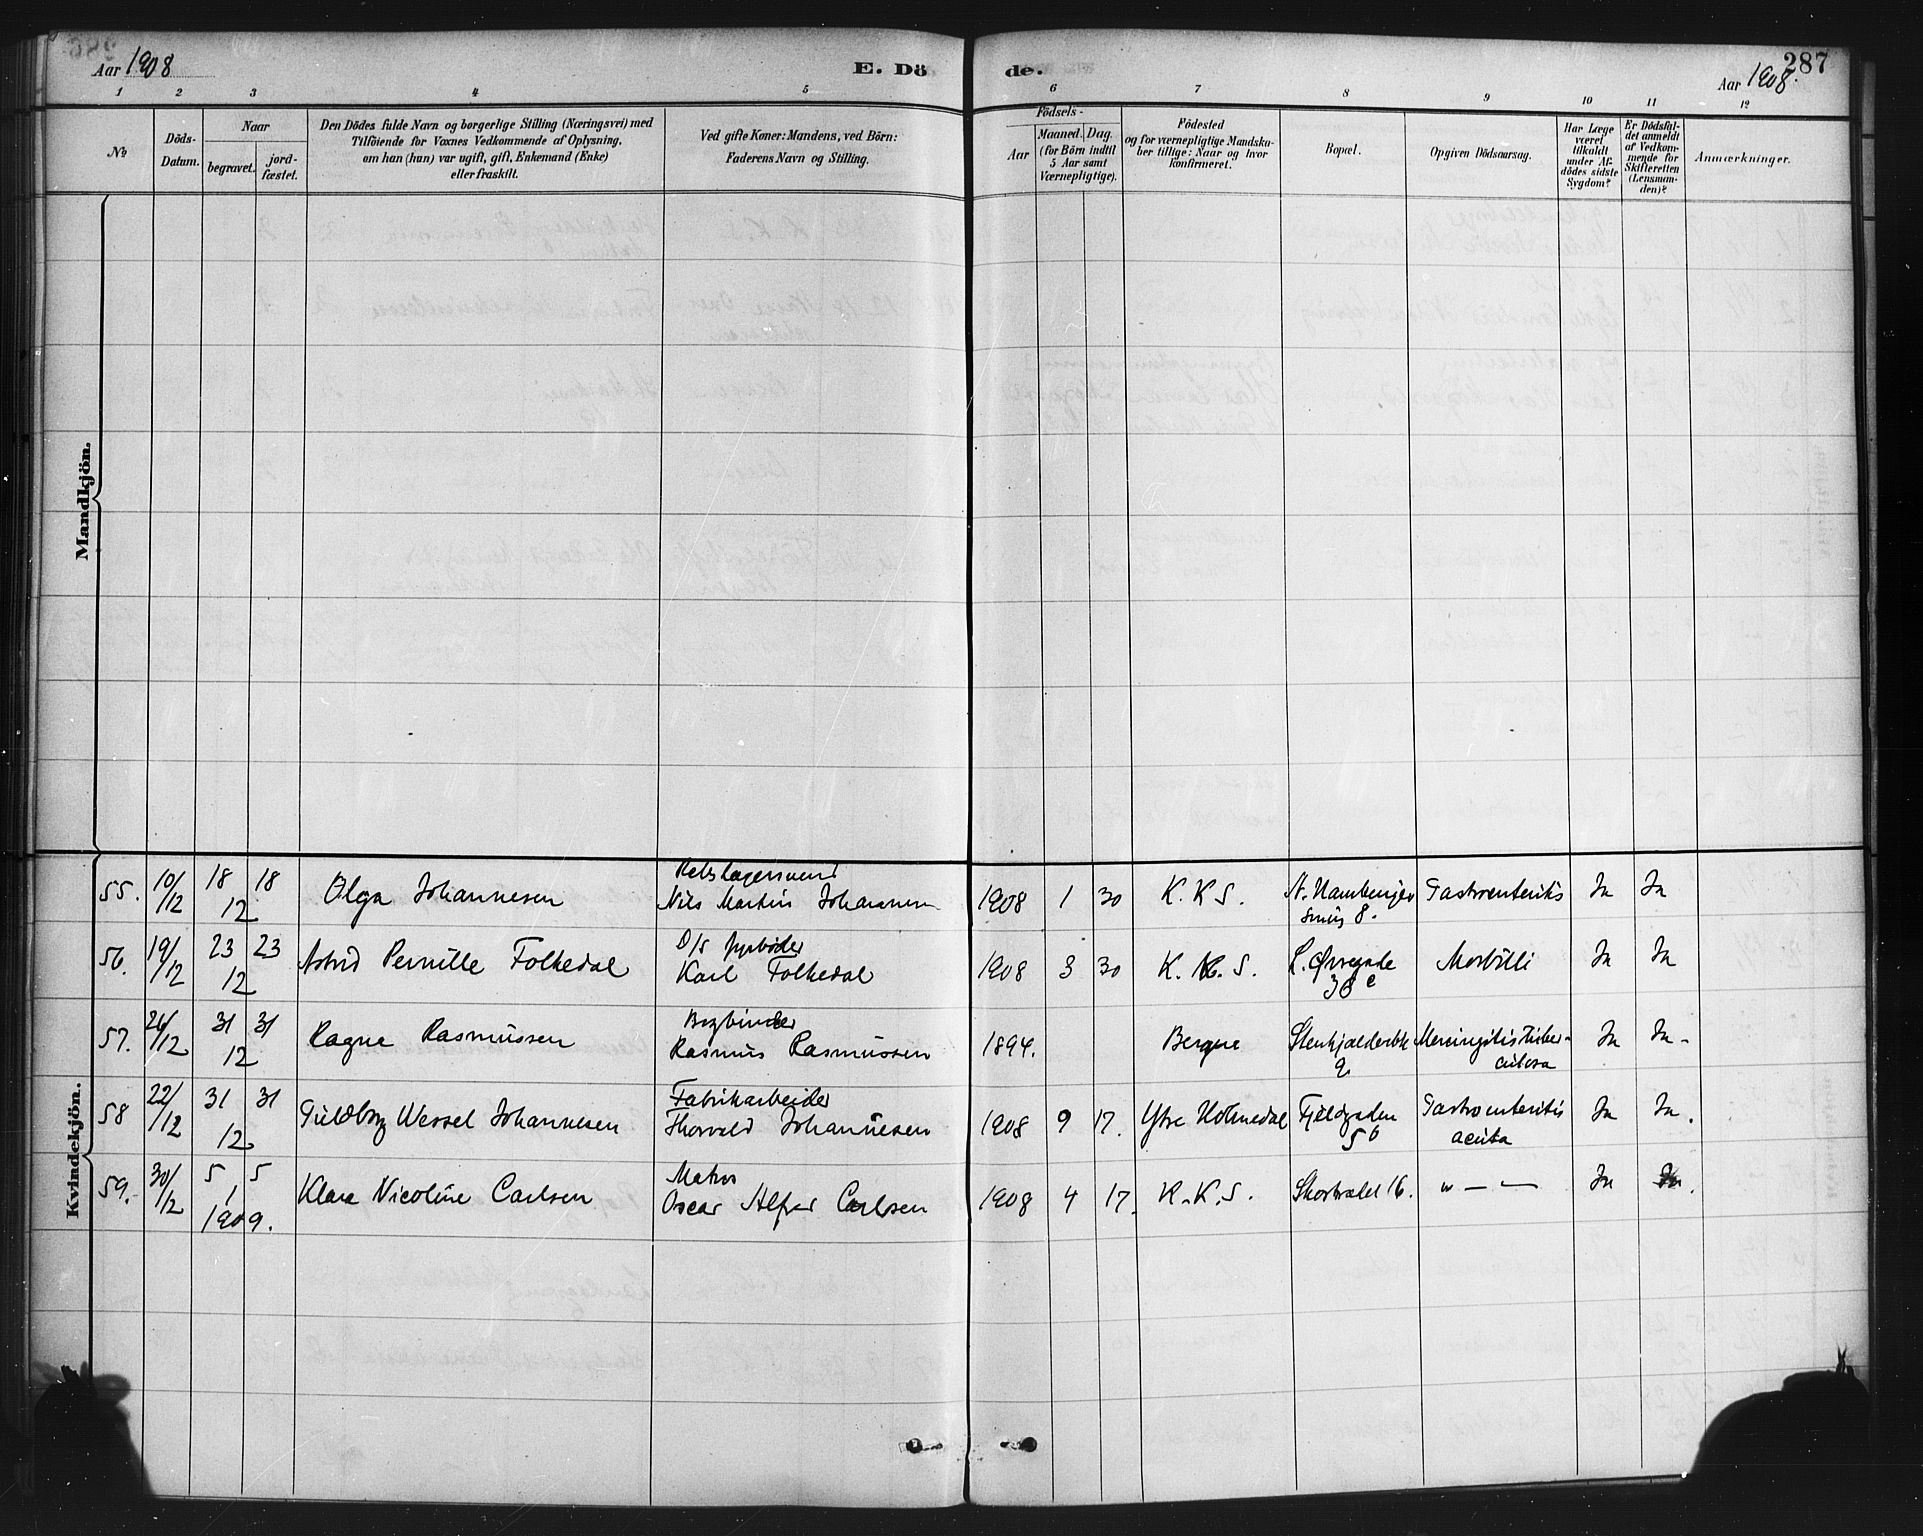 Aar 1908
E. Dö
de.
287
Aar 1908.
1 2 3 4 5 6 7 8 9 10 11 12
№
Döds-
Datum.
Naar
begravet.
jord-
fæstet.
Den Dödes fulde Navn og borgerlige Stilling (Næringsvei) med
Tilföiende for Voxnes Vedkommende af Oplysning,
om han (hun) var ugift, gift, Enkemand (Enke)
eller fraskilt.
Ved gifte Koner: Mandens, ved Börn:
Faderens Navn og Stilling.
Födsels-
Aar
Maaned. Dag.
(for Börn indtil
5 Aar samt
Værnepligtige).
Födested
og for værnepligtige Mandska-
ber tillige: Naar og hvor
konfirmeret.
Bopæl.
Opgiven Dödsaarsag.
Har Læge
været
tilkaldt
under Af-
dödes sidste
Sygdom?
Er Dödsfal-
det anmeldt
af Vedkom-
mende for
Skifteretten
(Lensman-
den)?
Anmærkninger.
Mandkjön.
Kvindekjön.
55. 10/12 18 18 12 Olga Johannesen
Nils Martin Johannesen 1908 1 30 K. K S. N. Hambenger
smug 8. Gastroenteritis Ja Ja
56. 19/12 23 23 12 Astrid Pernille Folkedal D/S fyrböder
Karl Folkedal 1908 3 30 K. K. S. L. Øvregade
Morbilli Ja Ja
57. 26/12 31 31 12 Ragna Rasmussen Bogbinder
Rasmus Rasmussen 1894. Bergen
9 Meningitis tuber-
culosa Ja Ja -
58 22/12 31 31 12 Guldborg Wessel Johannesen Fabrikarbeider
Thorvald Johannesen 1908 9 17. Ytre Holmedal Fjeldgaden
5b Gastroenteritis
acuta Ja Ja.
59. 30/12 5 5 1 1909. Klara Nicoline Carlsen Matros
Oscar Alfred Carlsen 1908 4 17. K. K. S. 16. " — — Ja Ja.